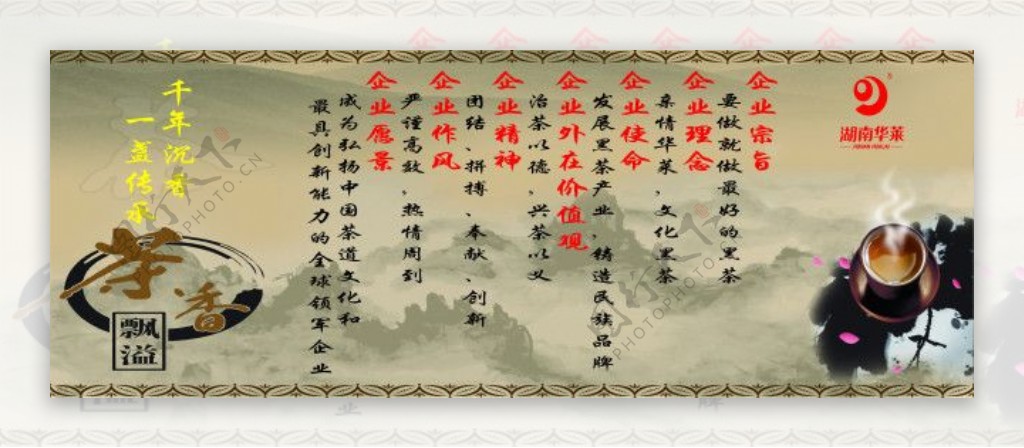 湖南华莱
企业宗旨
要做就做最好的黑茶
企业理念
亲情华莱,文化黑茶
企业使命
发展黑茶产业,铸造民族品牌
企业外在价值观
治茶以德,兴茶以义
企业精神
团结、拼搏、奉献、创新
企业作风
严谨高效,热情周到
企业愿景
成为弘扬中国茶道文化和
最具创新能力的全球领军企业
千年沉香
一盏传承
茶香
飘溢